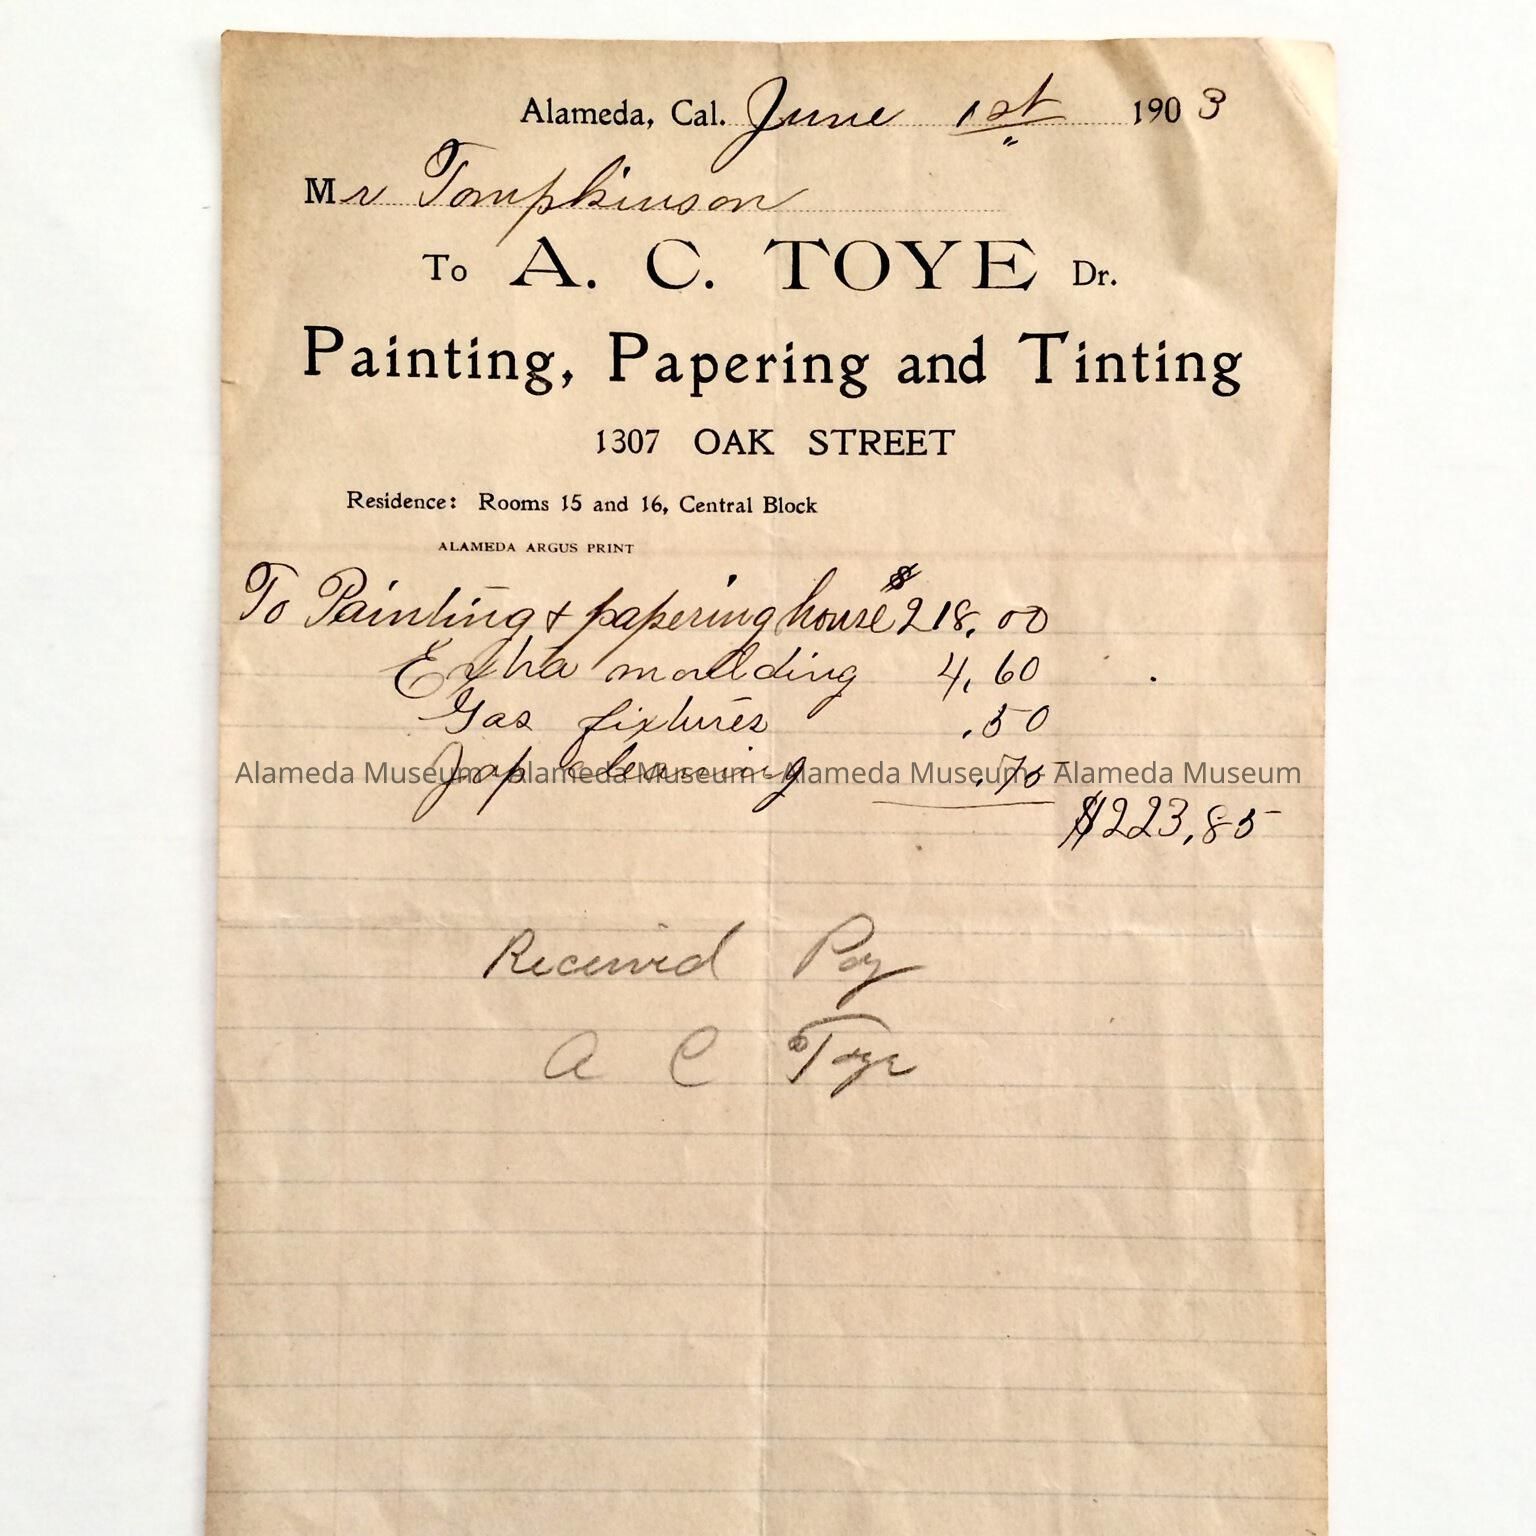 Alameda, Cal. June 1st 1903
Mr Tompkinson
To A. C. TOYE Dr.
Painting, Papering and Tinting
1307 OAK STREET
Residence: Rooms 15 and 16, Central Block
ALAMEDA ARGUS PRINT
To Painting & papering house $218.00
Extra moulding 4.60
Gas fixtures .50
Jap cleaning .75
Alameda Museum - Alameda Museum - Alameda Museum - Alameda Museum
$223.85
Received Pay
A C Toye